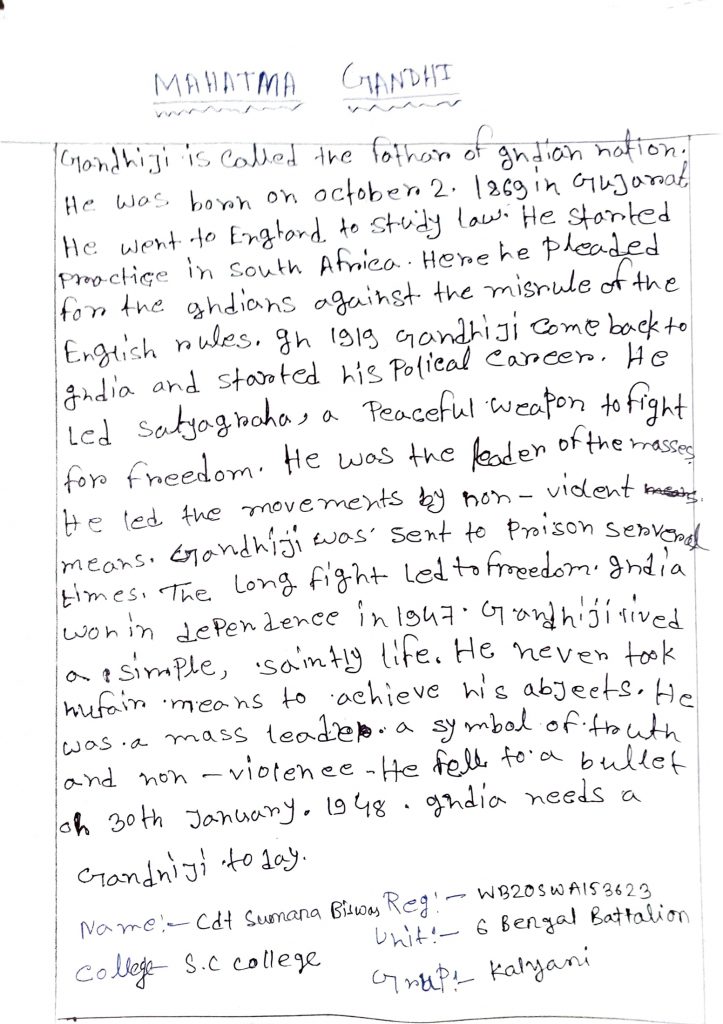 MAHATMA GANDHI
Gandhiji is called the father of Indian nation.
He was born on october 2. 1869 in Gujarat
He went to England to study law. He started
practice in south Africa. Here he pleaded
for the Indians against the misrule of the
English rules. In 1919 Gandhiji come back to
India and started his Polical career. He
Led satyagraha, a Peaceful weapon to fight
for freedom. He was the leader of the masses
He led the movements by non-violent means.
means. Gandhiji was sent to Prison serveral
times. The long fight led to freedom. India
won in dependence in 1947. Gandhiji lived
a simple, saintly life. He never took
unfair means to achieve his abjects. He
was a mass leader. a symbol of truth
and non-violence - He fell to a bullet
on 30th January. 1948. India needs a
Gandhiji today.
Name:- Cdt Sumana Biswas Reg:- WB20SWA153623
Unit:- 6 Bengal Battalion
College S.C college
Group:- Kalyani